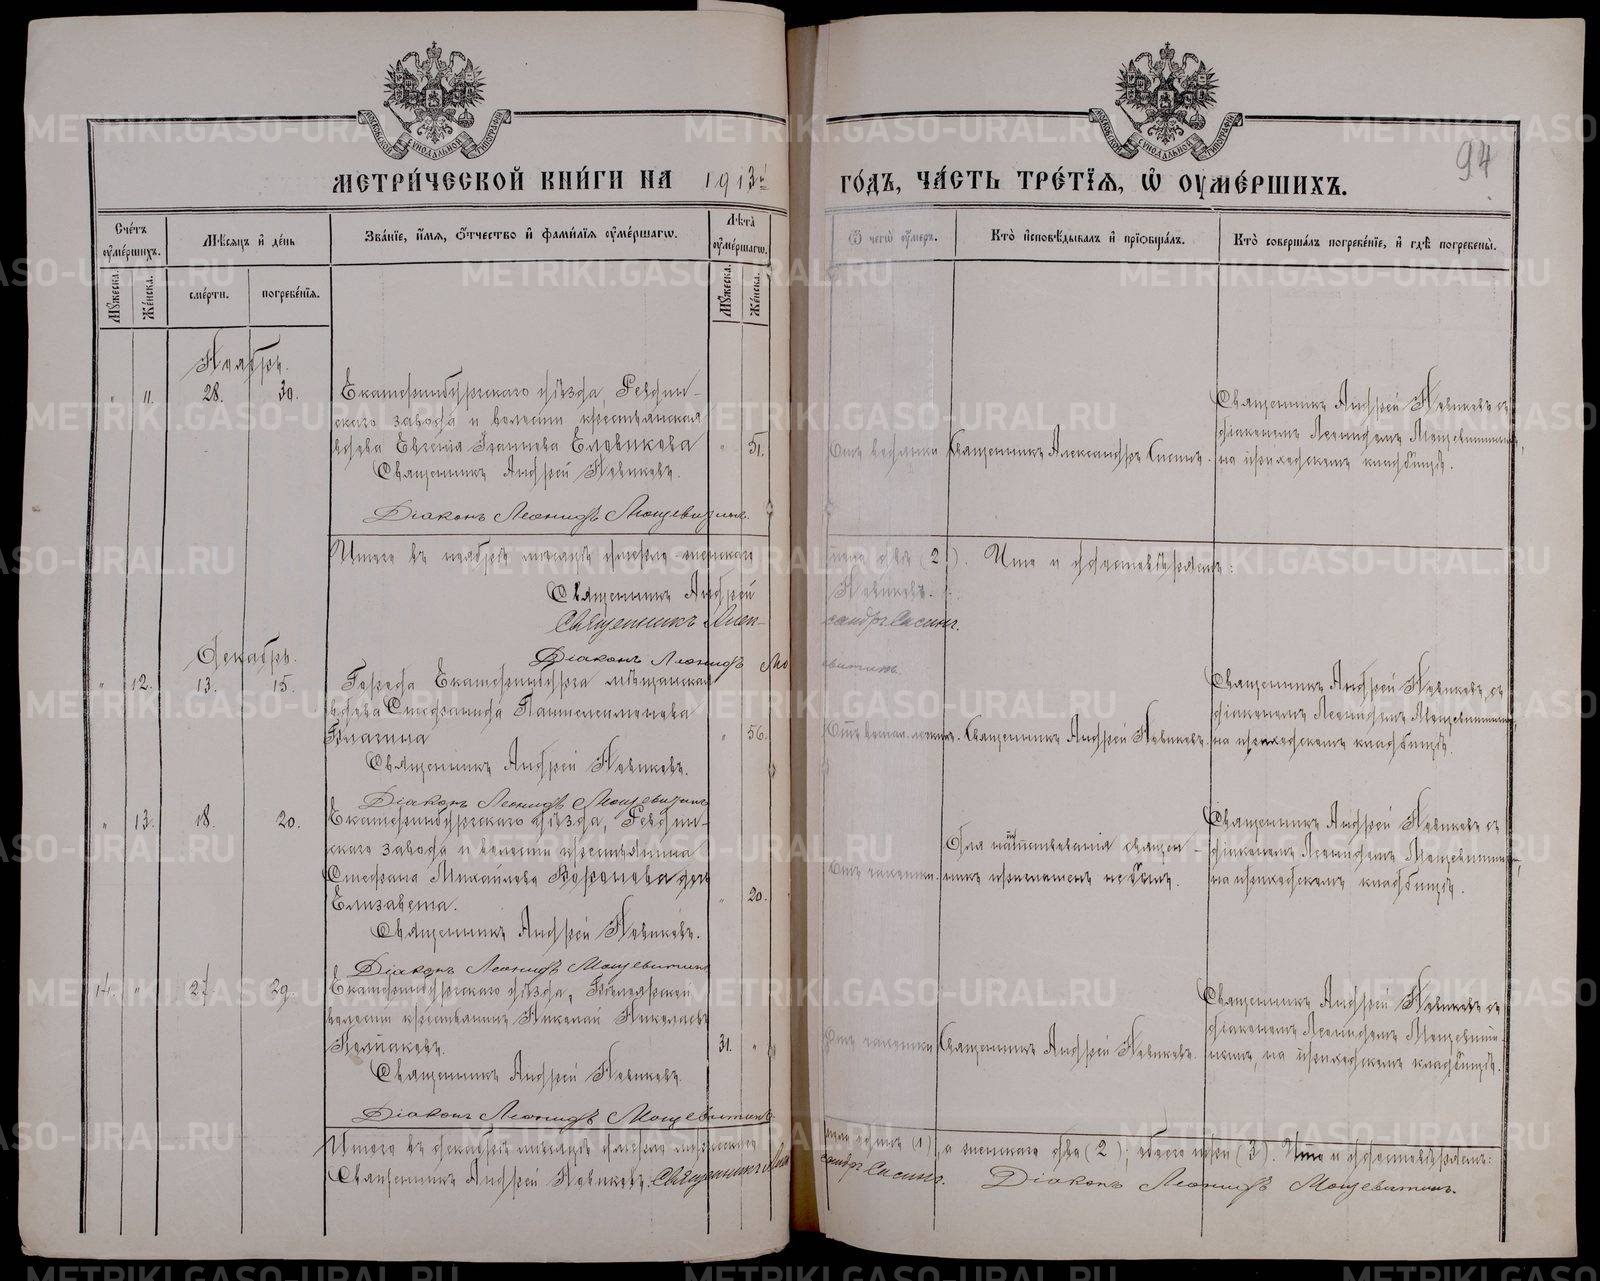 МЕТРИ́ЧЕСКОЙ КНИ́ГИ НА 1913й
ГО́ДЪ, ЧА́СТЬ ТРЕ́ТЇѦ, Ѡ҆ ОУМЕ́РШИХЪ.
94
Сче́тъ оу҆ме́ршихъ.
Мѣ́сѧцъ и҆ де́нь
Зва́нїе, и҆́мѧ, ѻ҆́тчество и҆ фами́лїѧ оу҆ме́ршагѡ.
Лѣ́та оу҆ме́ршагѡ.
Ѿ чегѡ̀ оу҆́меръ.
Кто̀ и҆сповѣ́дывалъ и҆ прїѡбща́лъ.
Кто̀ соверша́лъ погребе́нїе, и҆ гдѣ̀ погребены̀.
Мꙋ́жеска.
Же́нска.
сме́рти.
погребе́нїѧ.
Мꙋ́жеска.
Же́нска.
Ноябрь.
" 11. 28. 30.
Екатеринбургскаго уѣзда, Ревдин-
скаго завода и волости крестьянская
вдова Евгенія Іоаннова Еловикова
" 51.
Священникъ Андрей Новиковъ.
Діаконъ Леонидъ Мощевитинъ.
Отъ водянки
Священникъ Александръ Сасинъ.
Священникъ Андрей Новиковъ съ
діакономъ Леонидомъ Мощевитинымъ,
на приходскомъ кладбищѣ.
Итого въ ноябрѣ мѣсяцѣ умерло женскаго
пола двѣ (2). Что и удостовѣряемъ:
Священникъ Андрей Новиковъ.
Священникъ Александръ Сасинъ.
Діаконъ Леонидъ Мощевитинъ
Декабрь.
" 12. 13. 15.
Города Екатеринбурга мѣщанская
вдова Стефанида Пантелеимонова
" 56.
Священникъ Андрей Новиковъ.
Діаконъ Леонидъ Мощевитинъ
Священникъ Андрей Новиковъ.
Священникъ Андрей Новиковъ съ
діакономъ Леонидомъ Мощевитинымъ,
на приходскомъ кладбищѣ.
" 13. 18. 20.
Екатеринбургскаго уѣзда, Ревдин-
скаго завода и волости крестьянина
Стефана Михайлова Воронова дочь
Елизавета.
" 20.
Священникъ Андрей Новиковъ.
Діаконъ Леонидъ Мощевитинъ
Отъ чахотки.
Для напутствованія священ-
никъ приглашенъ не былъ.
Священникъ Андрей Новиковъ съ
діакономъ Леонидомъ Мощевитинымъ,
на приходскомъ кладбищѣ.
14. " 27. 29.
Екатеринбургскаго уѣзда,
волости крестьянинъ Николай Николаевъ
31. "
Священникъ Андрей Новиковъ.
Діаконъ Леонидъ Мощевитинъ
Отъ чахотки
Священникъ Андрей Новиковъ.
Священникъ Андрей Новиковъ съ
діакономъ Леонидомъ Мощевити-
нымъ, на приходскомъ кладбищѣ.
Итого въ декабрѣ мѣсяцѣ умерло мужескаго
пола одинъ (1) а женскаго двѣ (2); обоего три (3). Что и удостовѣряемъ:
Священникъ Андрей Новиковъ. Священникъ Александръ Сасинъ. Діаконъ Леонидъ Мощевитинъ.
METRIKI.GASO-URAL.RU